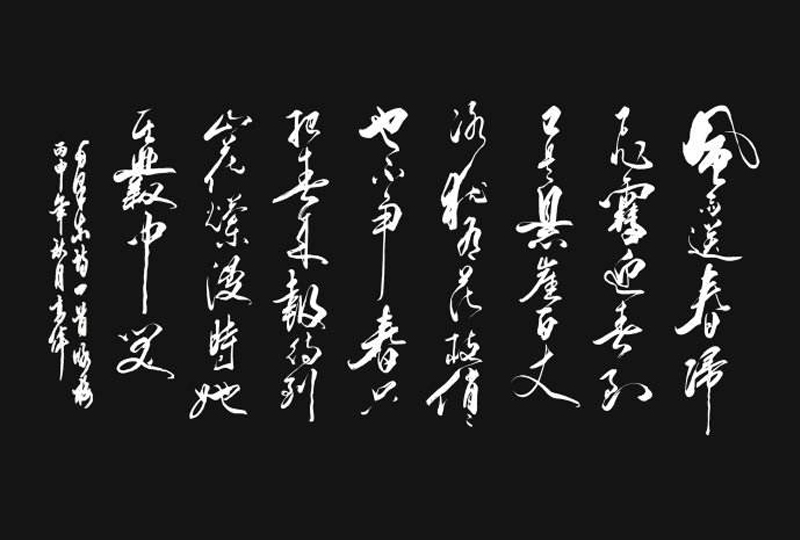 風雨送春歸
飛雪迎春到
已是懸崖百丈
冰犹有花枝俏々
也不争春只
把春来報待到
山花爛漫時她
在叢中笑
東詩一首咏梅
丙申年秋月